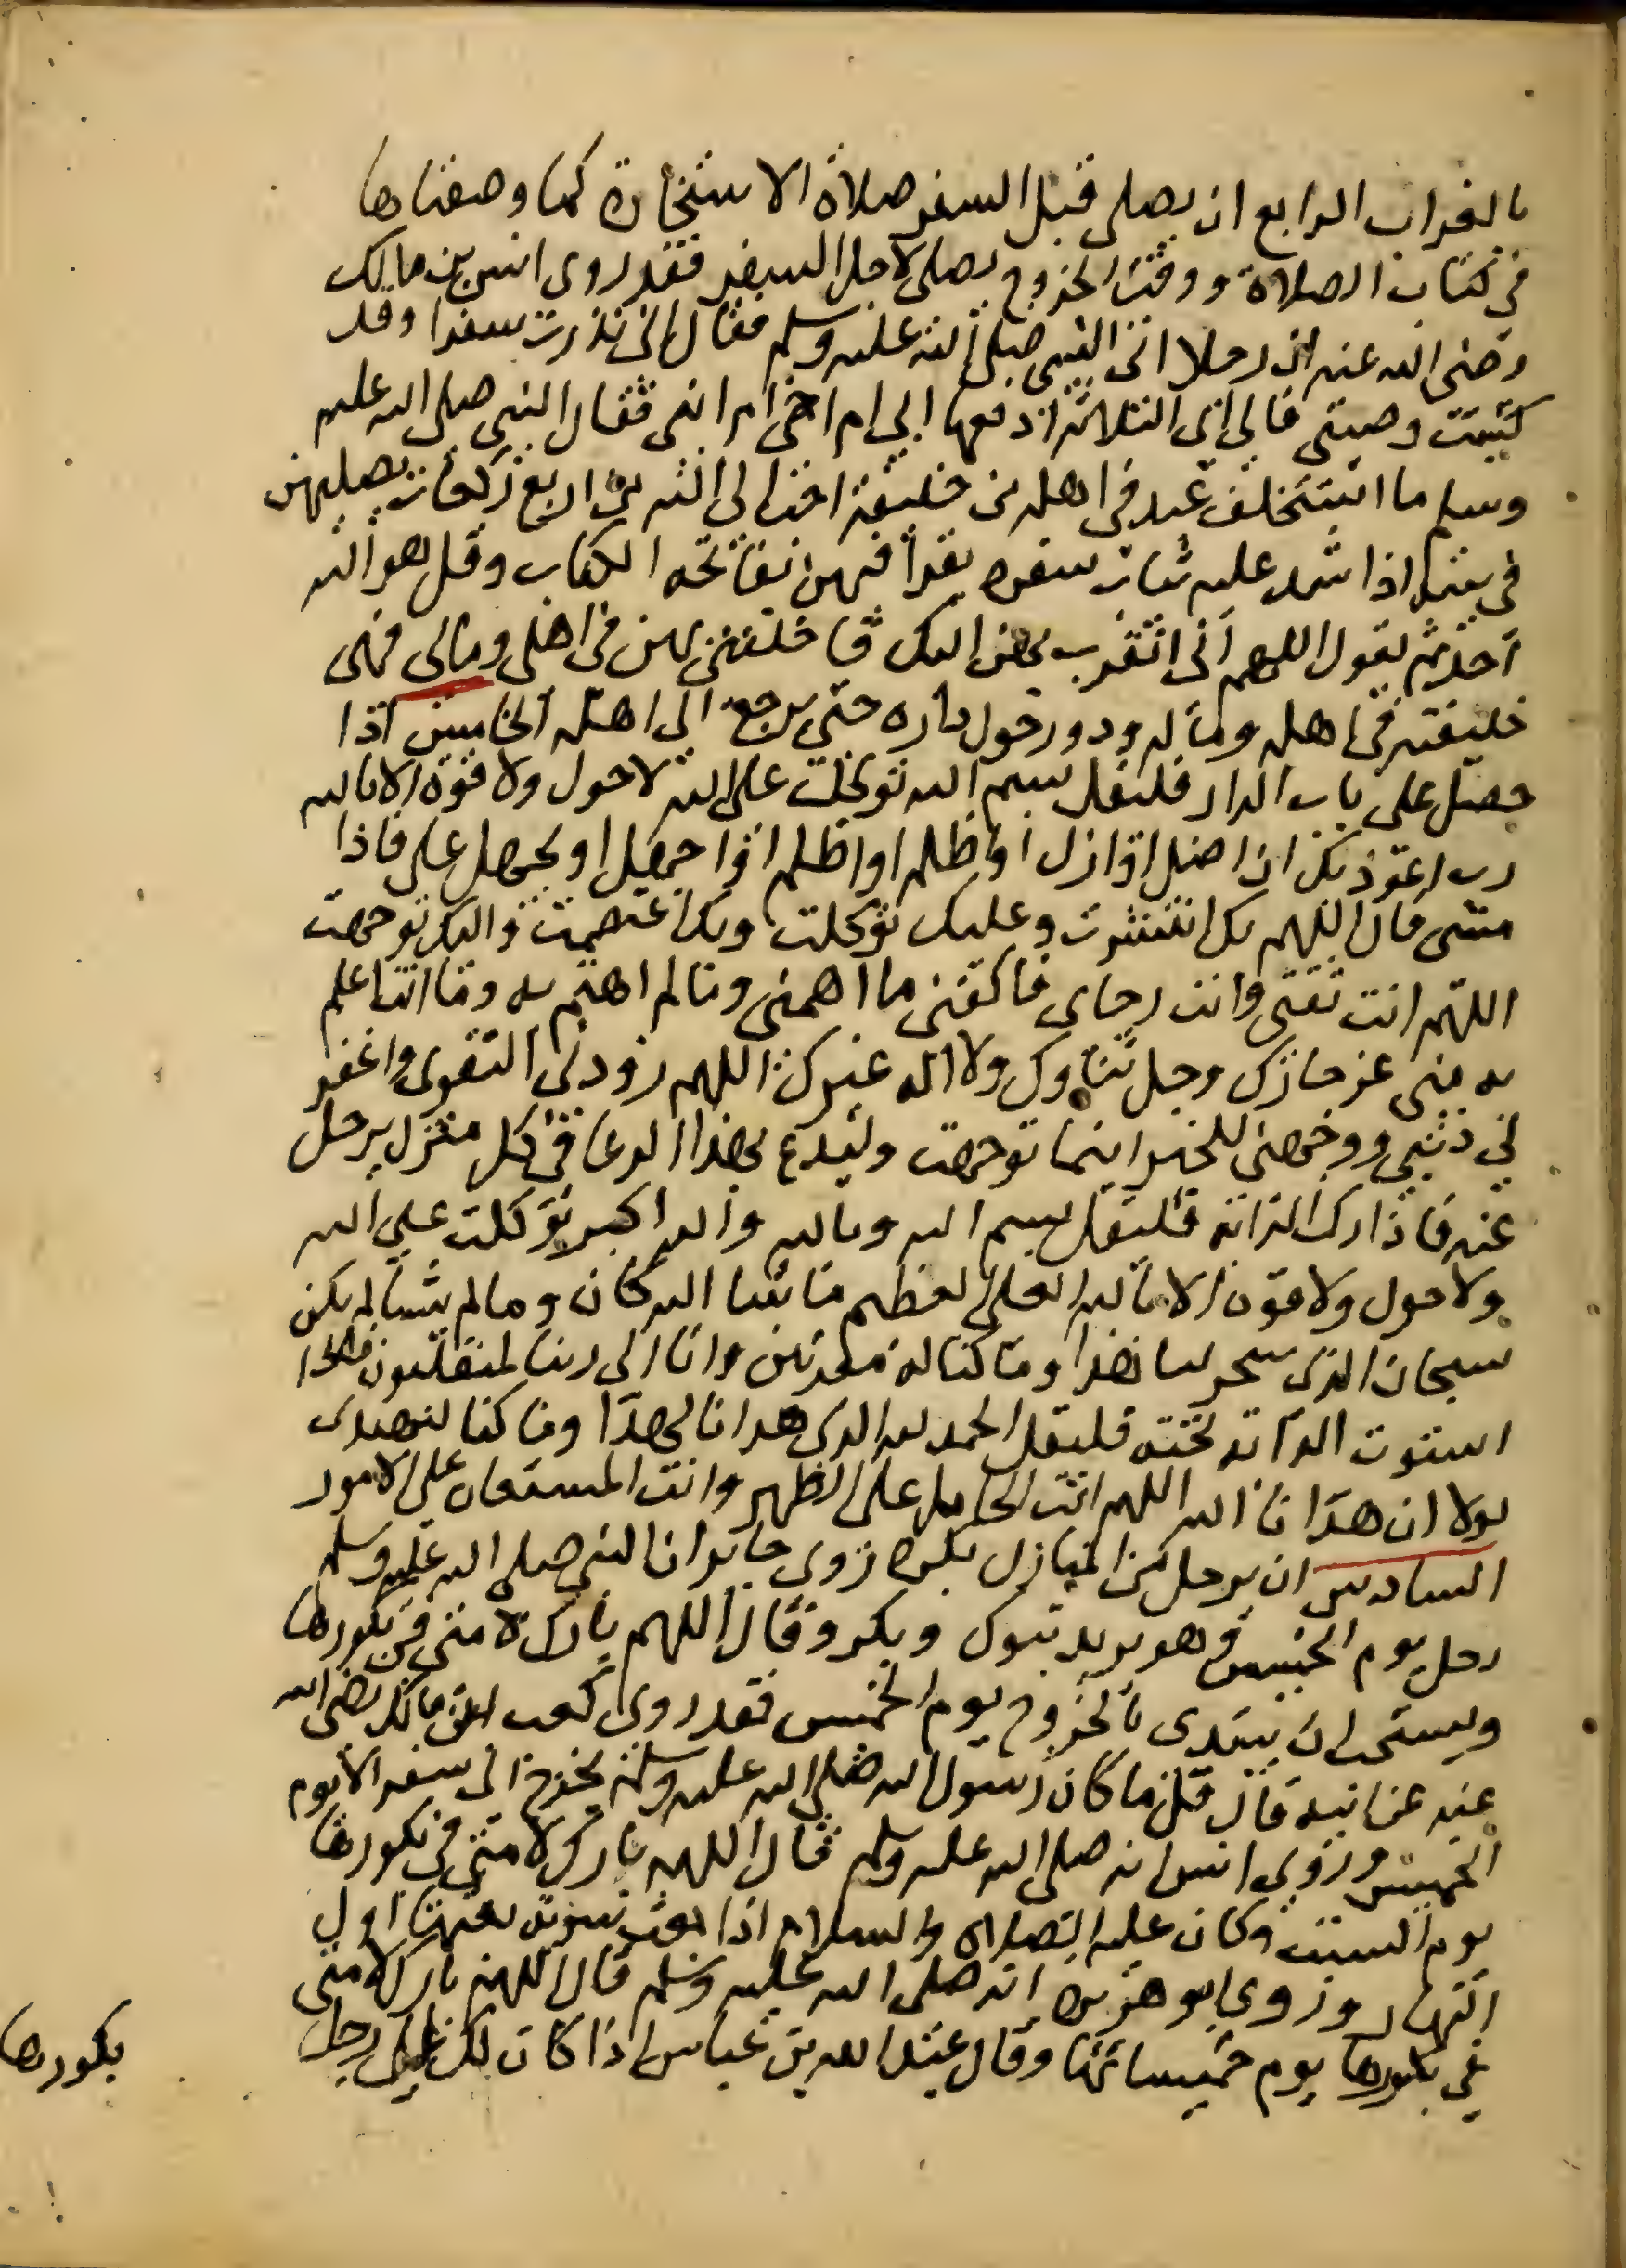 بالفراب الرابع ان يصلى قبل السفر صلاة الاستخارة كما وصفناها
فى كتاب الصلاة ووقت الخروج يصلى لاجل السفر فقد روى انس بن مالك
رضى الله عنه ان رجلا اتى النبى صلى الله عليه وسلم فقال انى نذرت سفرا وقد
كتبت وصيتى فالى اى الثلاثة ادفعها الى ام اخى ام ابى فقال النبى صلى الله عليه
وسلم ما استخلف عبد فى اهله من خليفة احب الى الله من اربع ركعات يصليهن
فى بيته اذا شد عليه ثياب سفره يقرأ فيهن بفاتحة الكتاب وقل هو الله
احد ثم يقول اللهم انى اتقرب بهن اليك فاخلفنى بهن فى اهلى ومالى فهى
خليفته فى اهله وماله ودور حول داره حتى يرجع الى اهله الخامس اذا
حصل على باب الدار فليقل بسم الله توكلت على الله لا حول ولا قوة الا بالله
رب اعوذ بك ان اضل او ازل او اظلم او اظلم او اجهل او يجهل على فاذا
مشى قال اللهم بك انتشرت وعليك توكلت وبك اعتصمت واليك توجهت
اللهم انت ثقتى وانت رجاى فاكفنى ما اهمنى وما لم اهتم به وما انت اعلم
به منى عز جارك وجل ثناوك ولا اله غيرك اللهم زودنى التقوى واغفر
لى ذنبى ووجهنى للخير اينما توجهت وليدع بهذا الدعا فى كل منزل يرحل
عنه فاذا ركب الدابة فليقل بسم الله وبالله والله اكبر توكلت على الله
ولا حول ولا قوة الا بالله العلى العظيم ما شا الله كان وما لم يشا لم يكن
سبحان الذى سخر لنا هذا وما كنا له مقرنين وانا الى ربنا لمنقلبون فاذا
استوت الدابة تحته فليقل الحمد لله الذى هدانا لهذا وما كنا لنهتدى
لولا ان هدانا الله اللهم انت الحامل على الظهر وانت المستعان على الامور
السادس ان يرحل من المنازل بكرة روى جابر ان النبى صلى الله عليه وسلم
رحل يوم الخميس وهو يريد تبوك وبكر وقال اللهم بارك لامتى فى بكورها
ويستحب ان يبتدى بالخروج يوم الخميس فقد روى كعب ابن مالك رضى الله
عنه عن ابيه قال قل ما كان رسول الله صلى الله عليه وسلم يخرج الى سفر الا يوم
الخميس وروى انس انه صلى الله عليه وسلم قال اللهم بارك لامتى فى بكورها
يوم السبت وكان عليه الصلاة والسلام اذا بعث سرية بعثها اول
النهار وروى ابو هريرة انه صلى الله عليه وسلم قال اللهم بارك لامتى
فى بكورها يوم خميسها وقال عبد الله بن عباس اذا كان لك الى رجل
بكورها